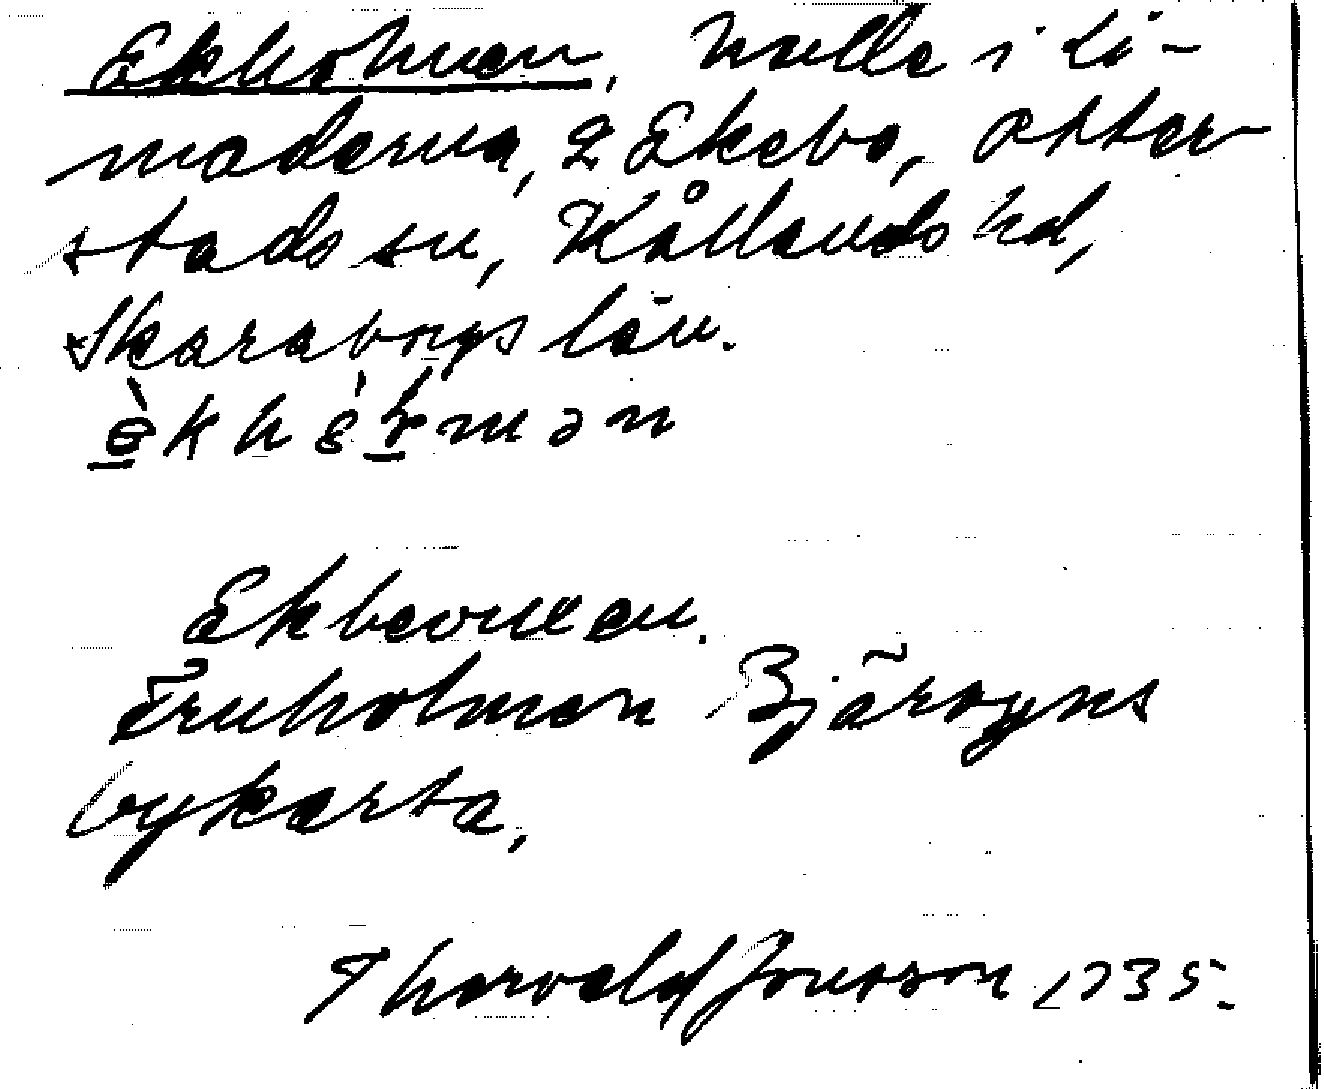 Ekholmen, kulle i Li-
maderna, 2 Ekebo, Otter-
stads sn, Kållands hd,
Skaraborgs län.
èkhólmən
Ekbevuxen.
Enholmen Bjärgens
bykarta,
Thorvald Jonsson 1935.